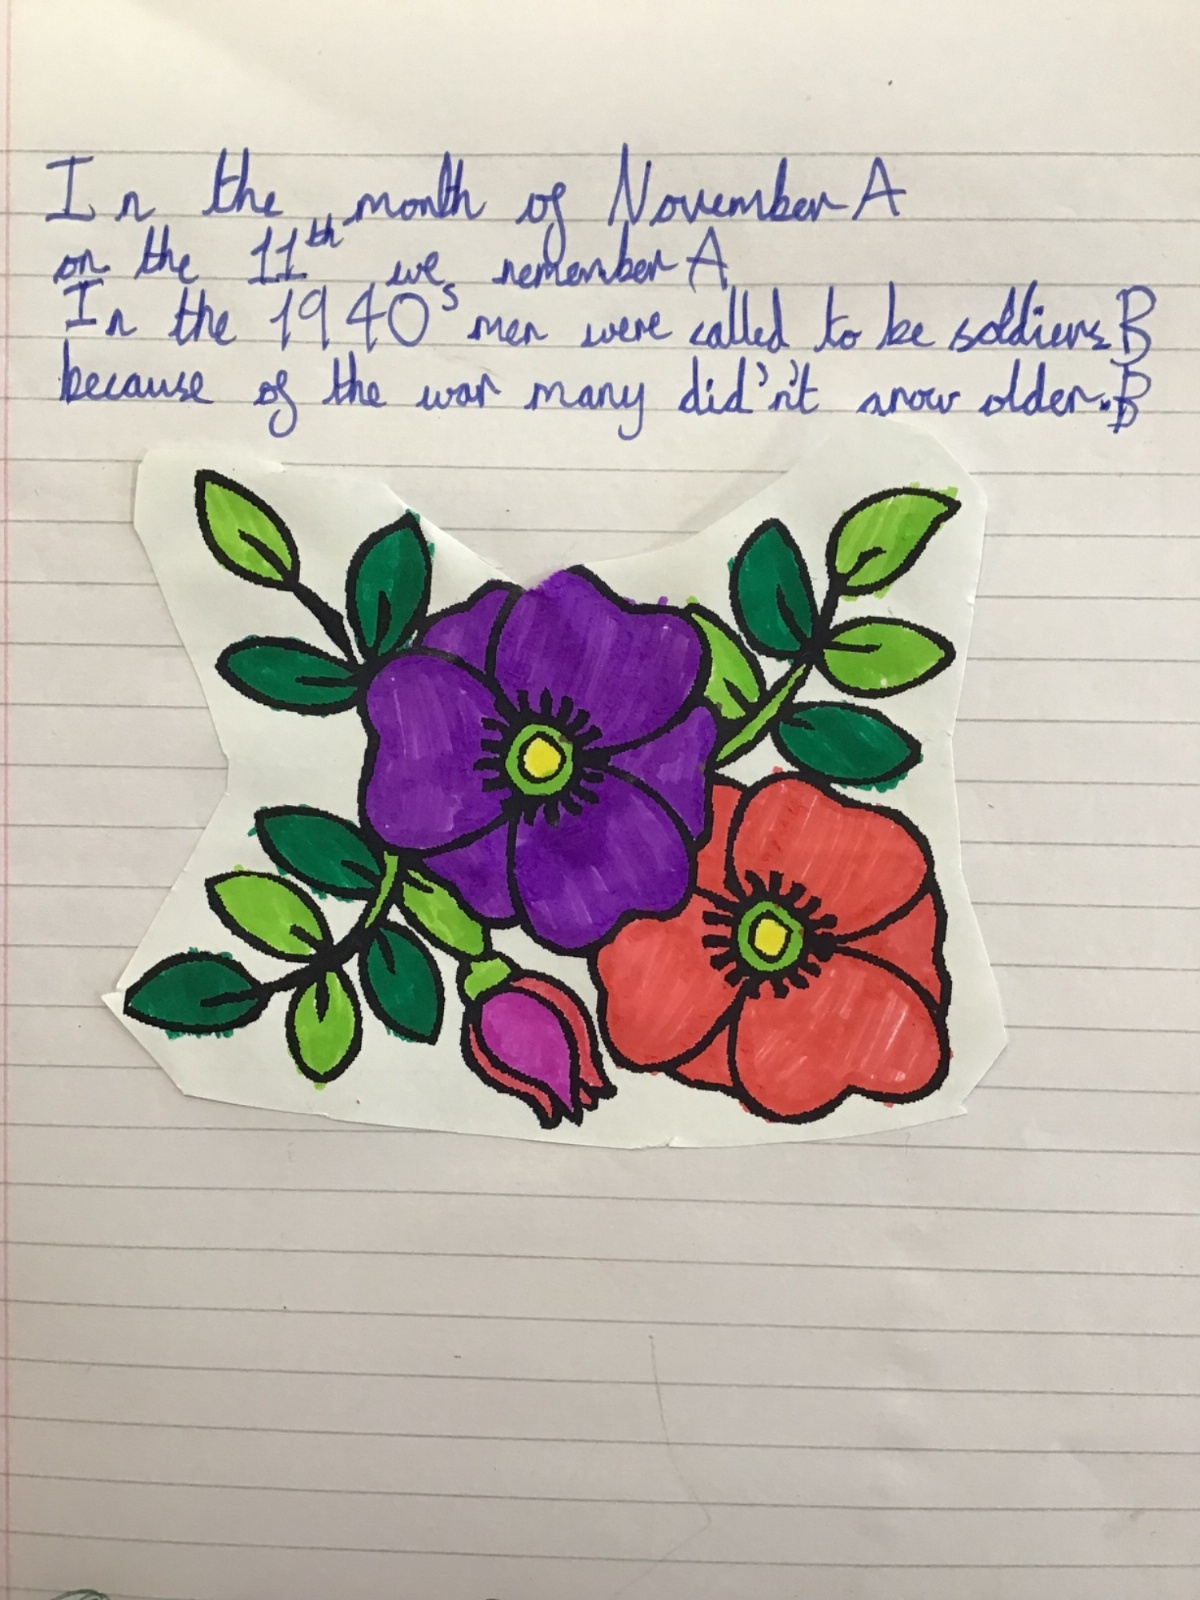 In the month of November A
on the 11th we remember A
In the 1940s men were called to be soldiers B
because of the war many did'n't grow older. B